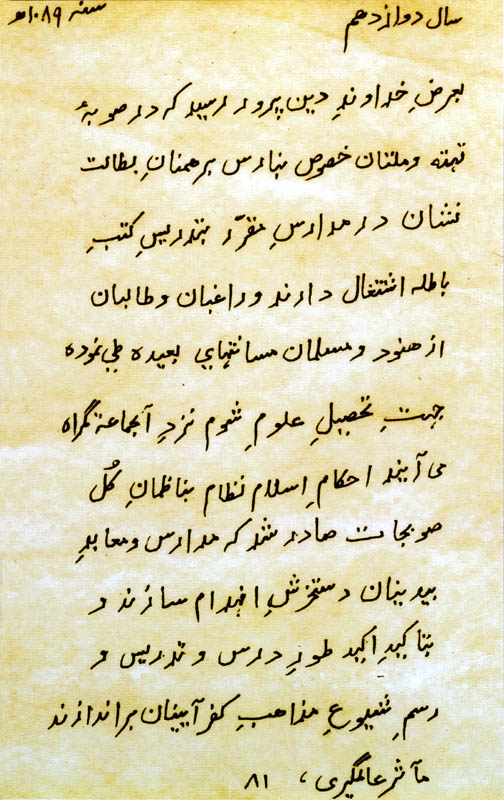 سال دوازدهم سنه ۱۰۸۹ه
بعرضِ خداوندِ دین پرور رسید که در صوبهٔ
تهته و ملتان خصوص بنارس برهمنانِ بطالت
نشان در مدارسِ مقرّر بتدریسِ کتبِ
باطله اشتغال دارند و راغبان و طالبان
از هنود و مسلمان مسافتهایِ بعیده طی نموده
جهتِ تحصیلِ علومِ شوم نزدِ آنجماعة گمراه
می آیند احکامِ اسلام نظام بناظمانِ کُل
صوبجات صادر شد که مدارس و معابدِ
بیدینان دستخوشِ انهدام سازند و
بتاکیدِ اکید طورِ درس و تدریس و
رسمِ شیوعِ مذاهبِ کفر آیینان براندازند
مآثر عالمگیری، ۸۱